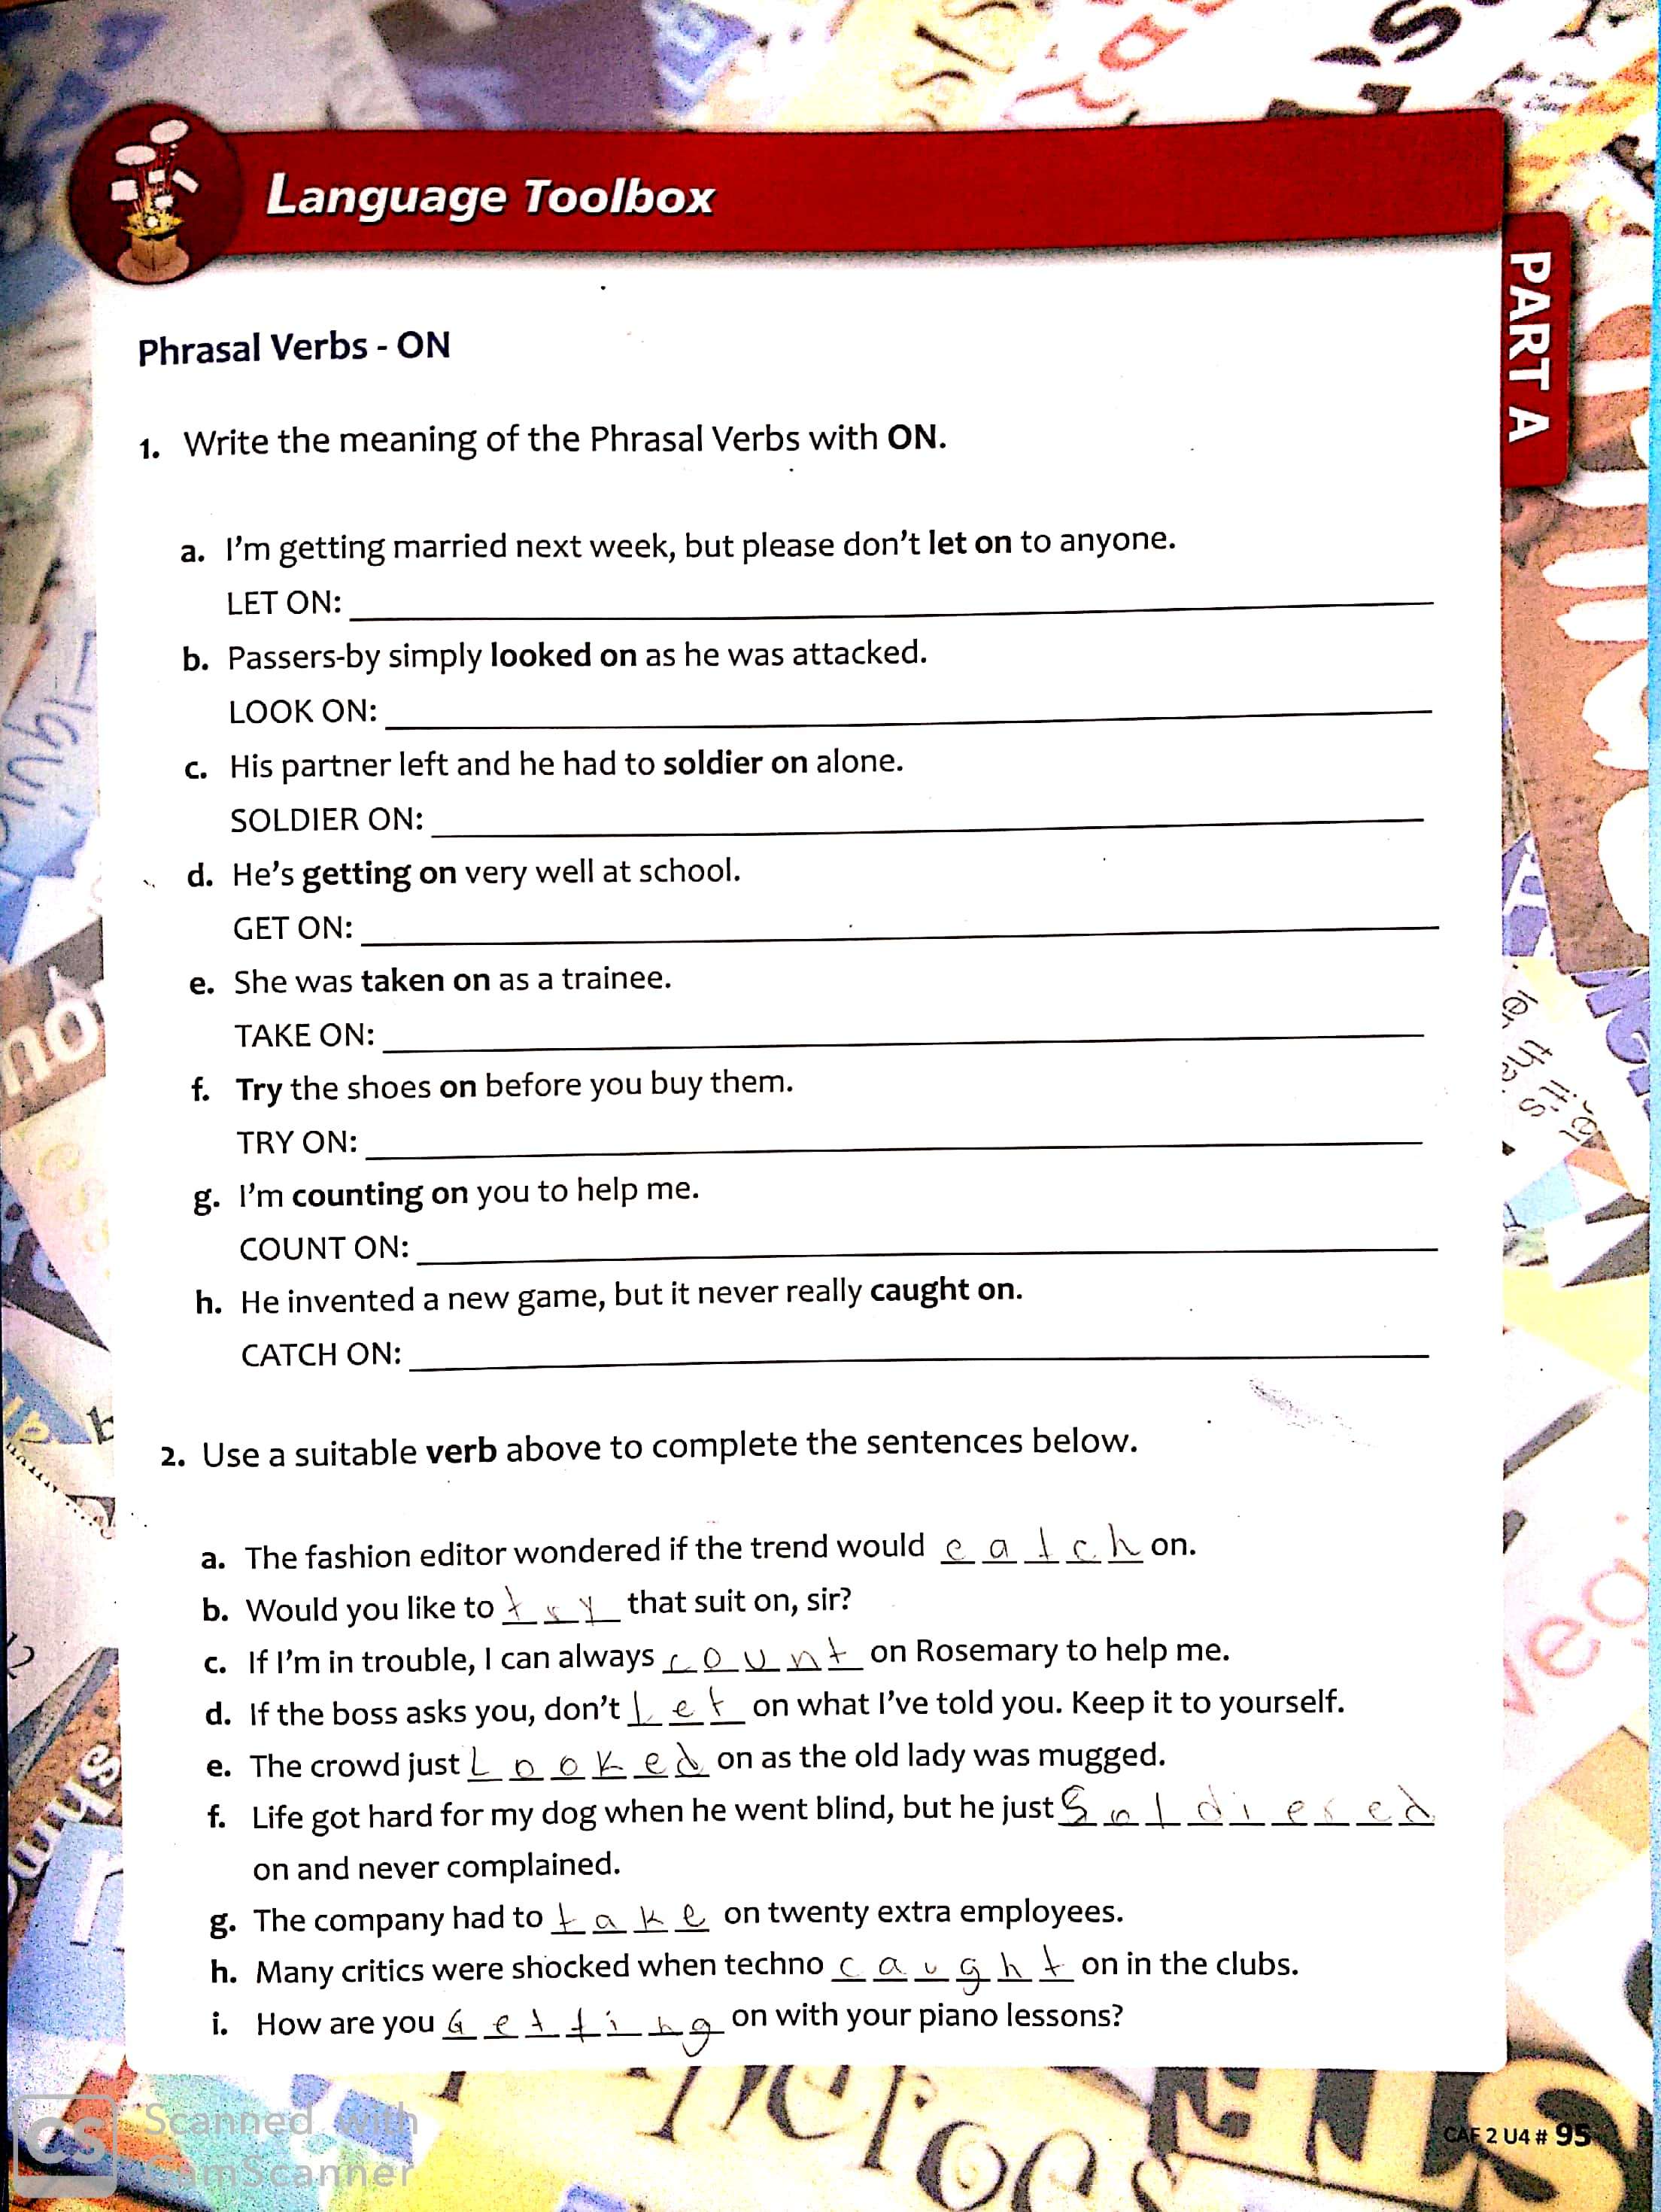 Language Toolbox
PART A
Phrasal Verbs - ON
1. Write the meaning of the Phrasal Verbs with ON.
a. I'm getting married next week, but please don't let on to anyone.
LET ON:
b. Passers-by simply looked on as he was attacked.
LOOK ON:
c. His partner left and he had to soldier on alone.
SOLDIER ON:
d. He's getting on very well at school.
GET ON:
e. She was taken on as a trainee.
TAKE ON:
f. Try the shoes on before you buy them.
TRY ON:
g. I'm counting on you to help me.
COUNT ON:
h. He invented a new game, but it never really caught on.
CATCH ON:
2. Use a suitable verb above to complete the sentences below.
a. The fashion editor wondered if the trend would catch on.
b. Would you like to try that suit on, sir?
c. If I'm in trouble, I can always count on Rosemary to help me.
d. If the boss asks you, don't Let on what I've told you. Keep it to yourself.
e. The crowd just Looked on as the old lady was mugged.
f. Life got hard for my dog when he went blind, but he just Soldiered
on and never complained.
g. The company had to take on twenty extra employees.
h. Many critics were shocked when techno caught on in the clubs.
i. How are you Getting on with your piano lessons?
CAF 2 U4 # 95
CS Scanned with
CamScanner